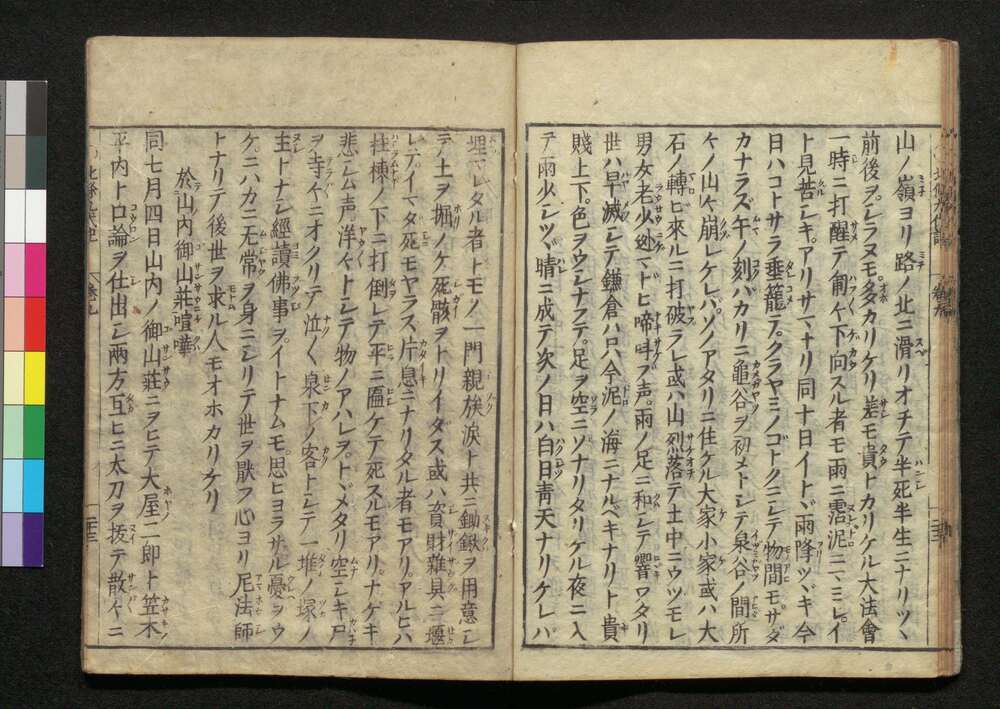 山ノ嶺ヨリ路ノ北ニ滑リオチテ半死半生ニナリツヽ
前後ヲシラヌモ多カリケリ差モ貴トカリケル大法會
一時ニ打醒テ匍々下向スル者モ雨ニ霑泥ニマミレイ
ト見苦シキアリサマナリ同十日イトヾ雨降ツヾキ今
日ハコトサラ垂籠テクラヤミノゴトクニシテ物間モサダ
カナラズ午ノ刻バカリニ龜谷ヲ初メトシテ泉谷ノ間所
々ノ山々崩レケレバソノアタリニ住ケル大家小家或ハ大
石ノ轉ビ來ルニ打破ラレ或ハ山烈落テ土中ニウツモレ
男女老少迯マドヒ啼呌ブ声雨ノ足ニ和シテ響ワタリ
世ハ早滅シテ鎌倉ハ只今泥ノ海ニナルベキナリト貴
賤上下色ヲウシナフテ足ヲ空ニソナリタリケル夜ニ入
テ雨少シツヾ晴ニ成テ次ノ日ハ白日青天ナリケレバ
埋マレタル者トモノ一門親族涙ト共ニ鋤鍬ヲ用意シ
テノ土ヲ掘ノケ死骸ヲトリイダス或ハ資財雜具ニ堰
レテイマタ死モヤラス片息ニナリタル者モアリアルヒハ
柱棟ノ下ニ打倒レテ平ニ匾ケテ死スルモアリナゲキ
悲シム声洋々トシテ物ノアハレヲトヾメタリ空シキ戸
ヲ寺々ニオクリテ泣々泉下ノ客トシテ一堆ノ塚ノ
主トナシ經讀佛事ヲイトナムモ思ヒヨラサル憂ヲウ
ケニハカニ无常ヲ身ニシリテ世ヲ厭フ心ヨリ尼法師
トナリテ後世ヲ求ル人モオホカリケリ
於山内御山荘喧嘩
同七月四日山内ノ御山荘ニヲヒテ大屋二郎ト笠木
平内ト口論ヲ仕出シ兩方互ヒニ太刀ヲ拔テ散々ニ